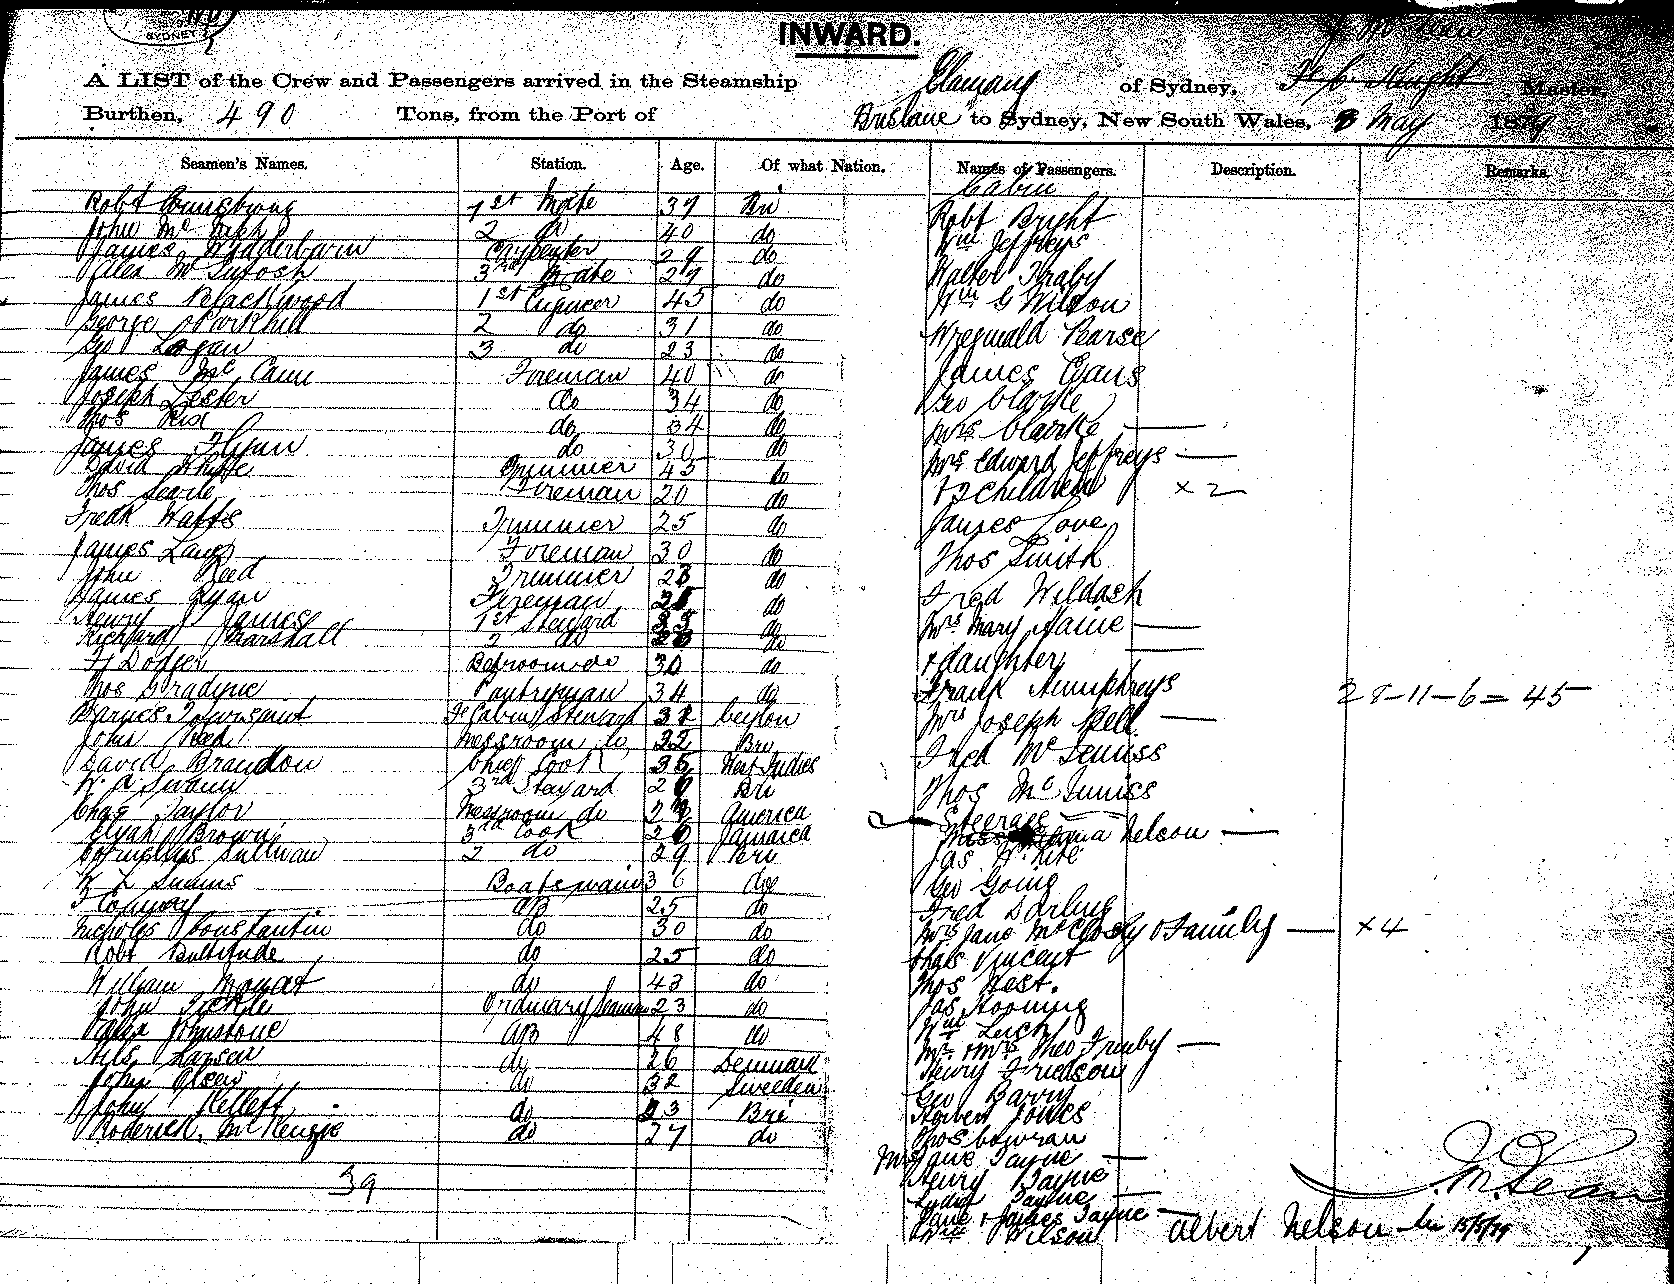 SYDNEY
INWARD.
A LIST of the Crew and Passengers arrived in the Steamship Elamang of Sydney, Master,
Burthen, 490 Tons, from the Port of Brisbane to Sydney, New South Wales, 8 May 1879
Seamen's Names. Station. Age. Of what Nation. Names of Passengers. Description. Remarks.
Cabin
Robt Armstrong 1st Mate 39 Bri
John Mc 2 do 40 do
James Carpenter 29 do
Alex McIntosh 3rd Mate 29 do
James Blackwood 1st Engineer 45 do
George Parkhill 2 do 31 do
Geo Logan 3 do 23 do
James McCann Fireman 40 do
Joseph Lester do 34 do
Thos Rix do 34 do
James Flynn do 30 do
David White Trimmer 45 do
Thos Searle Fireman 20 do
Fredk Watts Trimmer 25 do
James Lang Fireman 30 do
John Reed Trimmer 23 do
James Ryan Fireman do
Henry James 1st Steward 33 do
Richard Marshall 2 do do
H Dodger Bedroom do 30 do
Thos Bradyne Pantryman 34 do
Barnes Townsend Fe Cabin Steward Ceylon
John Reed Messroom do 22 Bri
David Brandon Chief Cook 35 West Indies
3rd Steward Bri
Chas Taylor Messroom do America
Elijah Brown 3rd Cook Jamaica
Cornelius Sullivan 2 do 29 Bri
W L Simms Boatswain 36 do
F Conway AB 25 do
Nicholas Constantin do 30 do
Robt Bultitude do 25 do
William Mouat do 43 do
John Tickle Ordinary Seaman 23 do
Alex Johnstone AB 48 do
Nils Larsen do 26 Denmark
John Olsen do 32 Sweeden
John Kellett do 23 Bri
Roderick McKenzie do 27 do
39
Robt Bright
Wm Jeffreys
Walter Thraby
Wm G Wilson
Wreginald Pearse
James Evans
Geo Clarke
Mrs Clarke —
Mrs Edward Jeffreys —
+ 2 Children × 2
James Love
Thos Smith
Fred Wildash
Mrs Mary Haine —
+ daughter —
Frank Humphreys
Mrs Joseph Bell —
Fred McGuniss
Thos McGuniss
28-11-6 = 45
Steerage
Miss Nelson —
Jas W Kite
Geo Going
Fred Darling
Mrs Jane McClosky & Family — × 4
Chas Vincent
Thos West.
Jas Hooning
Wm Leich
Mr & Mrs Theo Trenby —
Henry Friedson
Geo Barry
Robert Jones
Thos Cowran
Mrs Jane Payne —
Henry Payne
Payne —
Jane & James Payne —
Wm Wilson
Albert Nelson 15/5/79
J. McLean